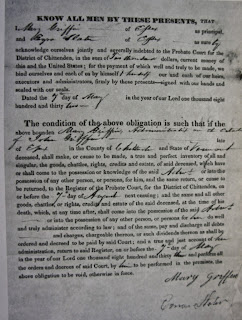 KNOW ALL MEN BY THESE PRESENTS, THAT
Mary Griffin of Essex as principal,
and of Essex as sure ty
acknowledge ourselves jointly and severally indebted to the Probate Court for the
District of Chittenden, in the sum of dollars, current money of
this and the United States; for the payment of which well and truly to be made, we
bind ourselves and each of us by himself and our and each of our heirs,
executors and administrators, firmly by these presents—signed with our hands and
sealed with our seals.
Dated the 7 day of May in the year of our Lord one thousand eight
hundred and thirty
The condition of the above obligation is such that if the
above bounden Mary Griffin Administratrix
of John Griffin late
of Essex in the County of Chittenden and State of Vermont
deceased, shall make, or cause to be made, a true and perfect inventory of all and
singular, the goods, chattels, rights, credits and estate of said deceased, which have
or shall come to the possession or knowledge of the said or into the
possession of any other person, or persons, for and the same return, or cause to
be returned, to the Register of the Probate Court, for the District of Chittenden, on
or before the 7 day of August next ensuing; and the same and all other
goods, chattels, or rights, credits and estate of the said deceased, at the time of his
death, which, at any time after, shall come into the possession of said
or into the possession of any other person, or persons for her do well
and truly administer according to law; and of the same, pay and discharge all debts
and charges, chargeable thereon, or such dividends thereon as shall be
ordered and decreed to be paid by said Court; and a true and just account of her
administration, return to said Register, on or before the 7 day of May
in the year of our Lord one thousand eight hundred and thirty and perform all
the orders and decrees of said Court, by her to be performed in the premises, the
above obligation to be void, otherwise in force.
Mary Griffin